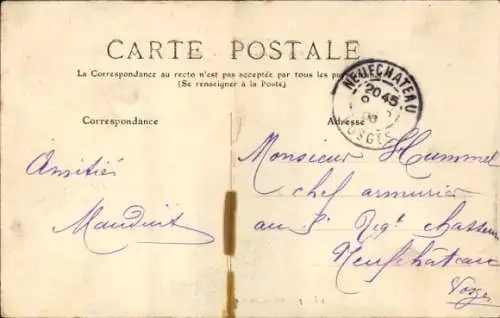 CARTE POSTALE
La Correspondance au recto n'est pas acceptée par tous les pays
(Se renseigner à la Poste)
NEUFCHATEAU
20 45
VOSGES
Correspondance
Adresse
Amitiés
Mauduit
Monsieur Hummel
chef armurier
au Regt chasseurs
Neufchâteau
Vosges